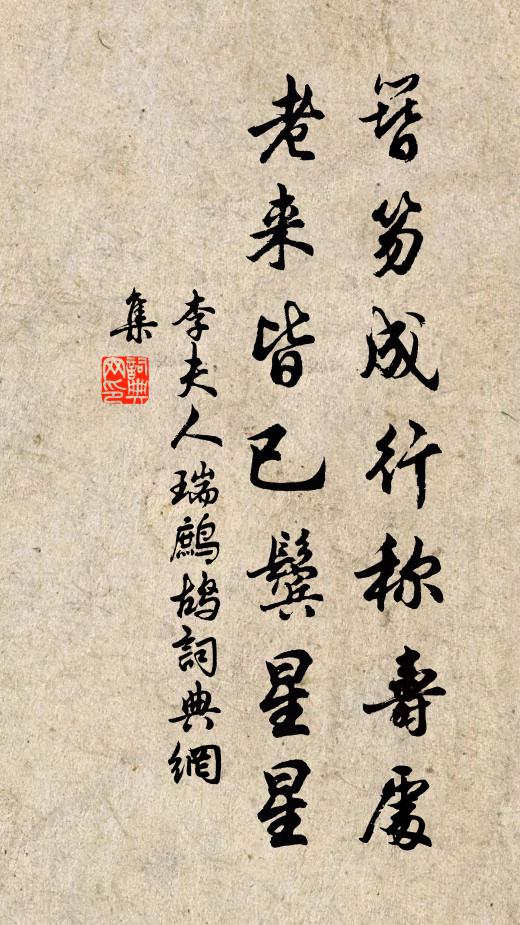 簪笏成行称壽處
老来皆已鬓星星
李夫人瑞鷓鴣詞典網
集
詞典